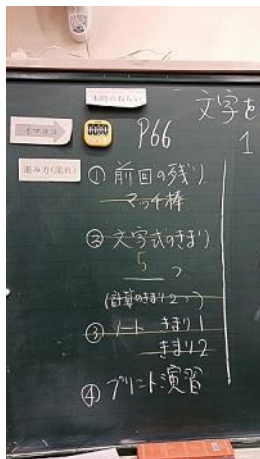 本時のねらい
文字を
イマココ
P66
1
進み方(流れ)
① 前回の残り
マッチ棒
② 文字式のきまり
5 つ
(計算のきまり2つ)
③ ノート きまり1
きまり2
④ プリント演習